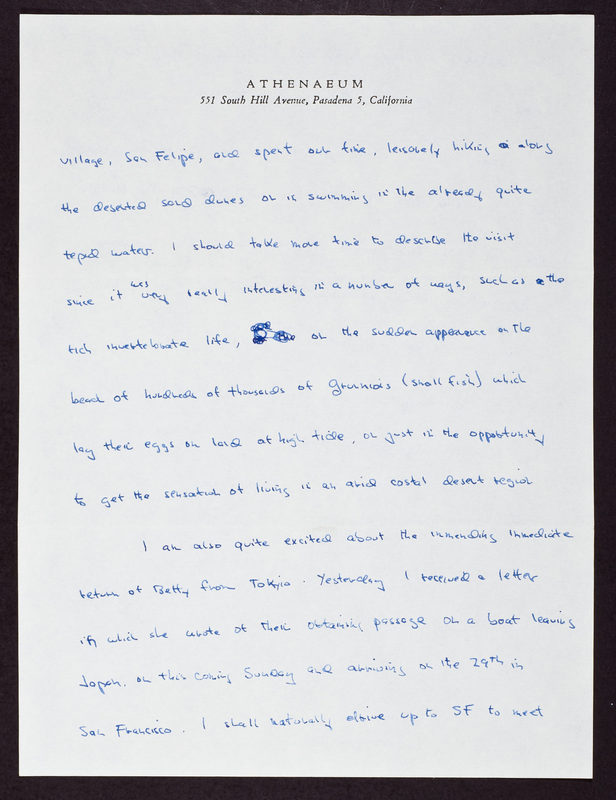 ATHENAEUM
551 South Hill Avenue, Pasadena 5, California
village, San Felipe, and spent our time, leisurely hiking along
the deserted sand dunes or in swimming in the already quite
tepid water. I should take more time to describe the visit
since it was very really interesting in a number of ways, such as the
rich invertebrate life, or the sudden appearance on the
beach of hundreds of thousands of Grunnions (small fish) which
lay their eggs on land at high tide, or just in the opportunity
to get the sensation of living in an arid costal desert region
I am also quite excited about the immending immediate
return of Betty from Tokyo. Yesterday I received a letter
in which she wrote of their obtaining passage on a boat leaving
Japan on this coming Sunday and arriving on the 29th in
San Francisco. I shall naturally drive up to SF to meet